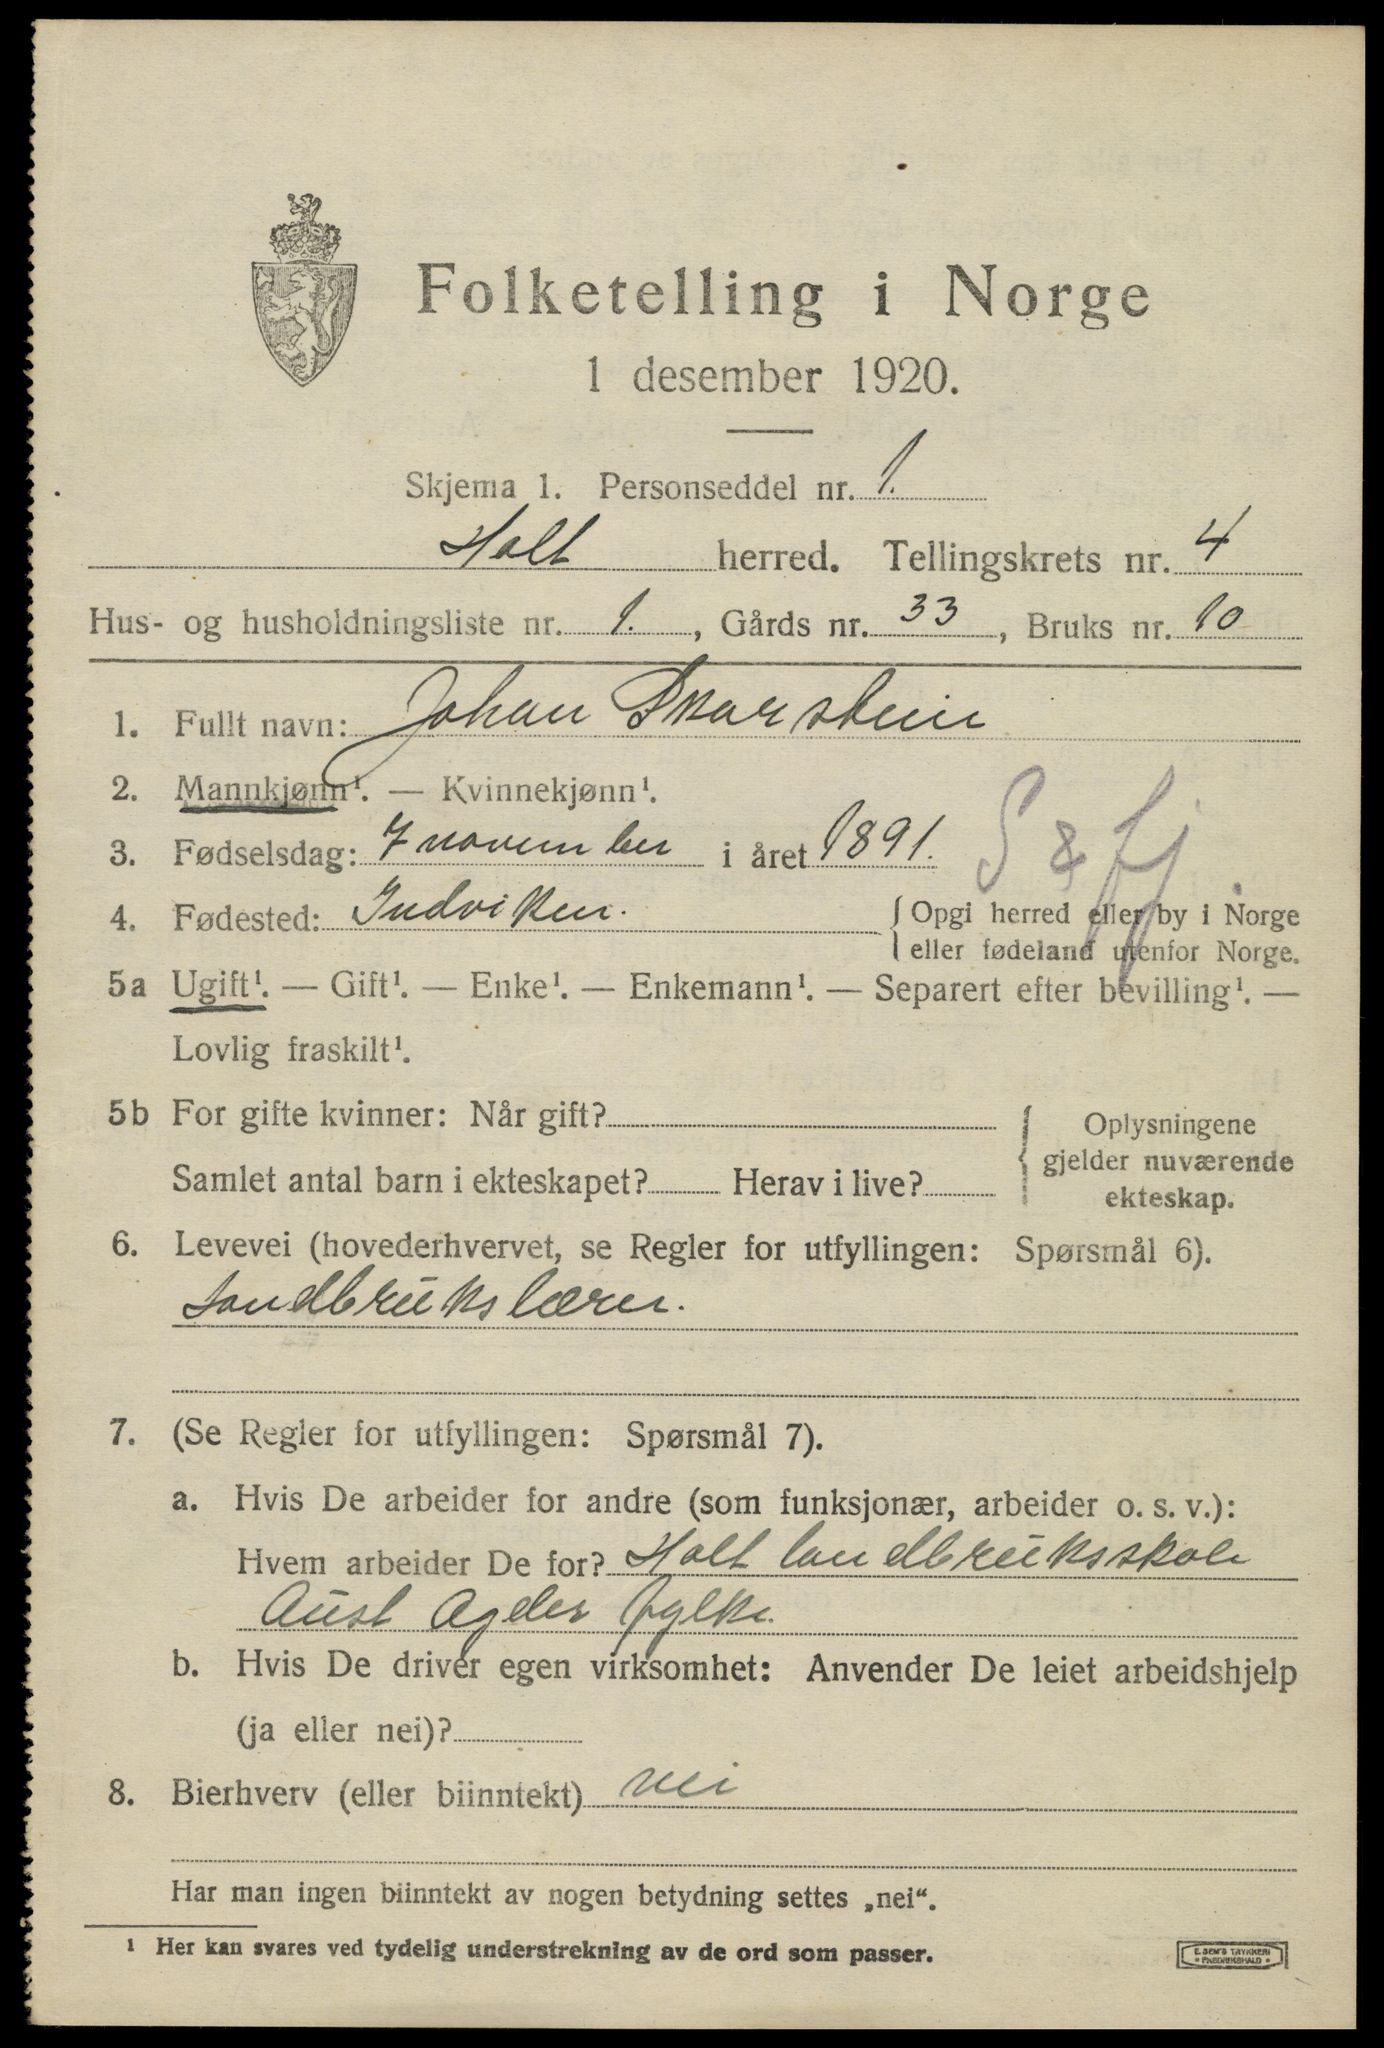 Folketelling i Norge
1 desember 1920.
Skjema 1. Personseddel nr. 1.
Holt herred. Tellingskrets nr. 4
Hus- og husholdningsliste nr. 1. , Gårds nr. 33 , Bruks nr. 10
1. Fullt navn: Johan Skarstein
2. Mannkjønn¹. — Kvinnekjønn¹.
3. Fødselsdag: 7 november i året 1891.
S & Fj
4. Fødested: Indviken. { Opgi herred eller by i Norge
eller fødeland utenfor Norge.
5a Ugift¹. — Gift¹. — Enke¹. — Enkemann¹. — Separert efter bevilling¹. —
Lovlig fraskilt¹.
5b For gifte kvinner: Når gift?
Samlet antal barn i ekteskapet? Herav i live?
{ Oplysningene
gjelder nuværende
ekteskap.
6. Levevei (hovederhvervet, se Regler for utfyllingen: Spørsmål 6).
Landbrukslærer.
7. (Se Regler for utfyllingen: Spørsmål 7).
a. Hvis De arbeider for andre (som funksjonær, arbeider o. s. v.):
Hvem arbeider De for? Holt landbruksskole
Aust Agder fylke.
b. Hvis De driver egen virksomhet: Anvender De leiet arbeidshjelp
(ja eller nei)?
8. Bierhverv (eller biinntekt) nei
Har man ingen biinntekt av nogen betydning settes „nei“.
¹ Her kan svares ved tydelig understrekning av de ord som passer.
E. SEM'S TRYKKERI
FREDRIKSHALD